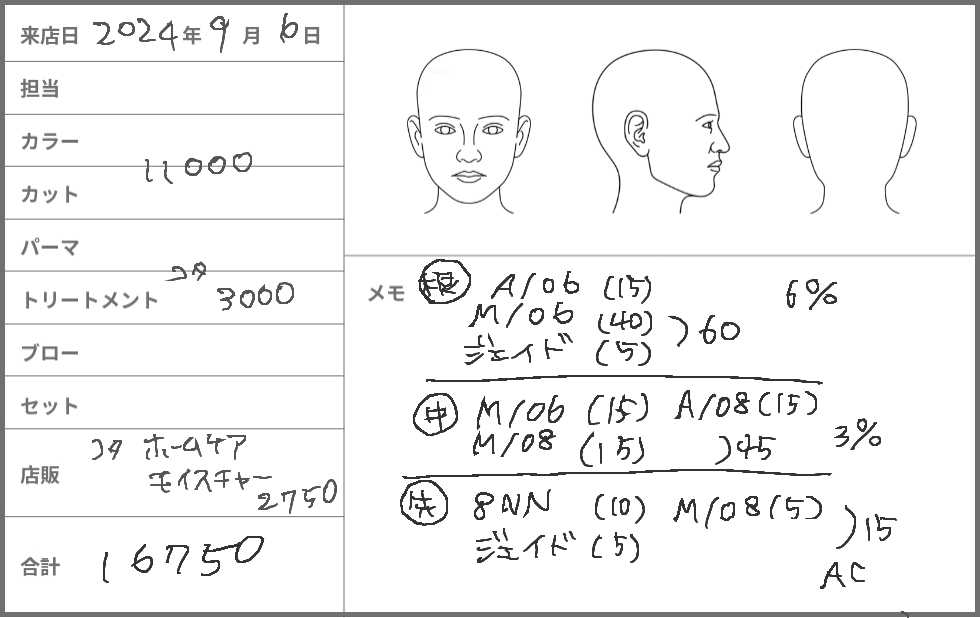 来店日 2024年 9月 6日
担当
カラー
11000
カット
パーマ
コタ
トリートメント 3000
ブロー
セット
コタ ホームケア
店販 モイスチャー
2750
合計 16750
メモ 根 A/06 (15) 6%
M/06 (40) )60
ジェイド (5)
中 M/06 (15) A/08 (15) 3%
M/08 (15) )45
先 8NN (10) M/08 (5) )15
ジェイド (5)
AC